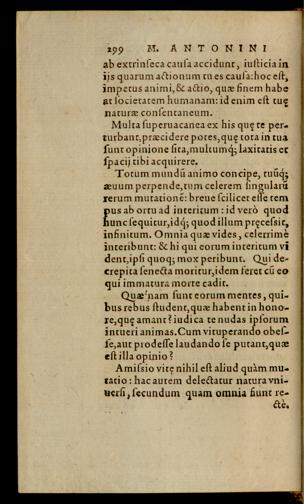 299 M. ANTONINI
ab extrinseca causa accidunt, iusticia in
ijs quarum actionum tu es causa: hoc est,
impetus animi, & actio, quæ finem habeat
at societatem humanam: id enim est tuę
naturæ consentaneum.
Multa superuacanea ex his quę te per-
turbant, præcidere potes, quę tota in tua
sunt opinione sita, multumq́; laxitatis et
spacij tibi acquirere.
Totum mundū animo concipe, tuūq́;
æuum perpende, tum celerem singularū
rerum mutationē: breue scilicet esse tem
pus ab ortu ad interitum: id verò quod
hunc sequitur, idq́; quod illum pręcessit,
infinitum. Omnia quæ vides, celerrimè
interibunt: & hi qui eorum interitum vi
dent, ipsi quoq; mox peribunt. Qui de-
crepita senecta moritur, idem feret cū eo
qui immatura morte cadit.
Quæ nam sunt eorum mentes, qui-
bus rebus student, quæ habent in hono-
re, quę amant? iudica te nudas ipsorum
intueri animas. Cum vituperando obes-
se, aut prodesse laudando se putant, quæ
est illa opinio?
Amissio vitę nihil est aliud quàm mu-
tatio: hac autem delectatur natura vni-
uersi, secundum quam omnia fiunt re-
ctè.